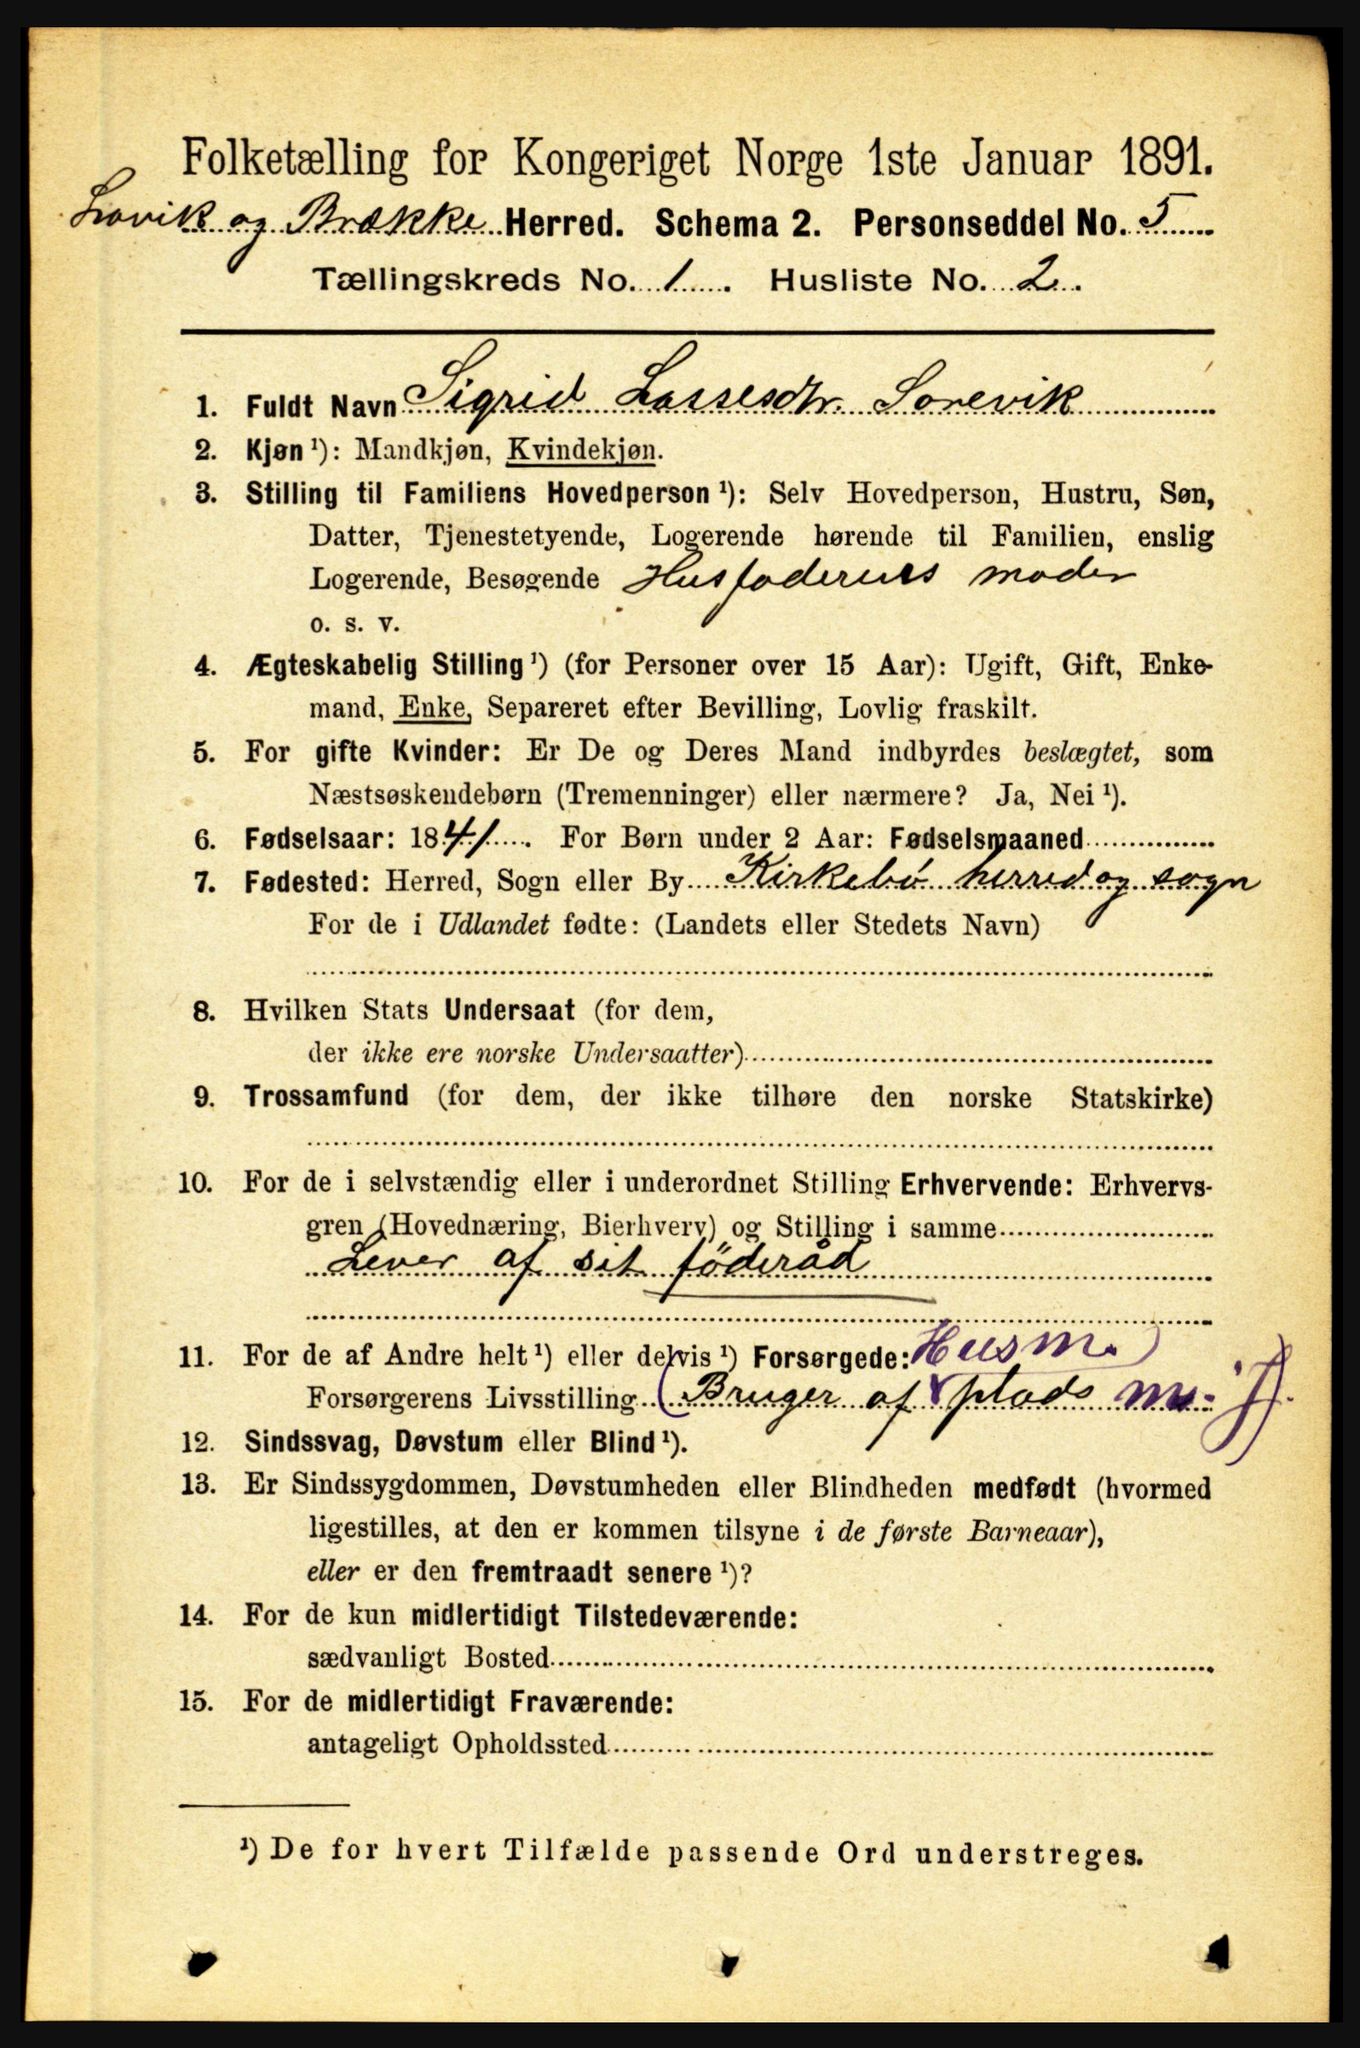 Folketælling for Kongeriget Norge 1ste Januar 1891.
Lavik og Brække Herred. Schema 2. Personseddel No. 5
Tællingskreds No. 1. Husliste No. 2.
1. Fuldt Navn Sigrid Lassesdtr. Sørevik
2. Kjøn ¹): Mandkjøn, Kvindekjøn.
3. Stilling til Familiens Hovedperson ¹): Selv Hovedperson, Hustru, Søn,
Datter, Tjenestetyende, Logerende hørende til Familien, enslig
Logerende, Besøgende Husfaderens moder
o. s. v.
4. Ægteskabelig Stilling ¹) (for Personer over 15 Aar): Ugift, Gift, Enke-
mand, Enke, Separeret efter Bevilling, Lovlig fraskilt.
5. For gifte Kvinder: Er De og Deres Mand indbyrdes beslægtet, som
Næstsøskendebørn (Tremenninger) eller nærmere? Ja, Nei ¹).
6. Fødselsaar: 1841. For Børn under 2 Aar: Fødselsmaaned
7. Fødested: Herred, Sogn eller By Kirkebö herred og sogn
For de i Udlandet fødte: (Landets eller Stedets Navn)
8. Hvilken Stats Undersaat (for dem,
der ikke ere norske Undersaatter)
9. Trossamfund (for dem, der ikke tilhøre den norske Statskirke)
10. For de i selvstændig eller i underordnet Stilling Erhvervende: Erhvervs-
gren (Hovednæring, Bierhverv) og Stilling i samme
Lever af sit föderåd
11. For de af Andre helt ¹) eller delvis ¹) Forsørgede: Husm.
Forsørgerens Livsstilling (Bruger af plads m. J).
12. Sindssvag, Døvstum eller Blind ¹).
13. Er Sindssygdommen, Døvstumheden eller Blindheden medfødt (hvormed
ligestilles, at den er kommen tilsyne i de første Barneaar),
eller er den fremtraadt senere ¹)?
14. For de kun midlertidigt Tilstedeværende:
sædvanligt Bosted
15. For de midlertidigt Fraværende:
antageligt Opholdssted
¹) De for hvert Tilfælde passende Ord understreges.